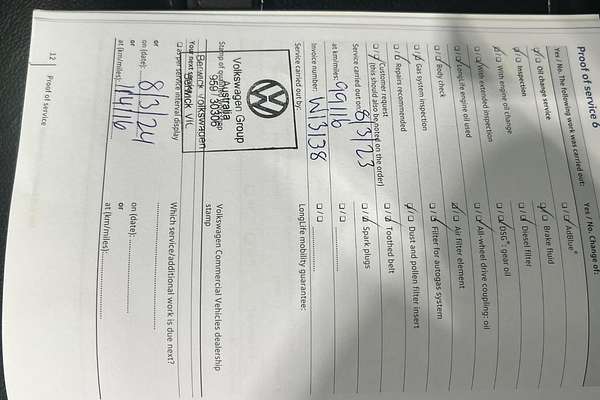 Proof of service 6
Yes / No. The following work was carried out:
Oil change service
Inspection
With engine oil change
With extended inspection
LongLife engine oil used
Body check
Gas system inspection
Repairs recommended
Customer request
(this should also be noted on the order)
Service carried out on: 8/3/23
at km/miles: 99116
Invoice number: W13138
Service carried out by:
Volkswagen Group
Australia
959 / 30306
Berwick Volkswagen
Berwick VIC
Stamp of
Your next service:
as per service interval display
or
on (date): 8/3/24
or
at (km/miles): 114116
Yes / No. Change of:
AdBlue®
Brake fluid
Diesel filter
DSG® gear oil
All-wheel drive coupling: oil
Air filter element
Filter for autogas system
Dust and pollen filter insert
Toothed belt
Spark plugs
LongLife mobility guarantee:
Volkswagen Commercial Vehicles dealership
stamp
Which service/additional work is due next?
on (date):
or
at (km/miles):
12 Proof of service